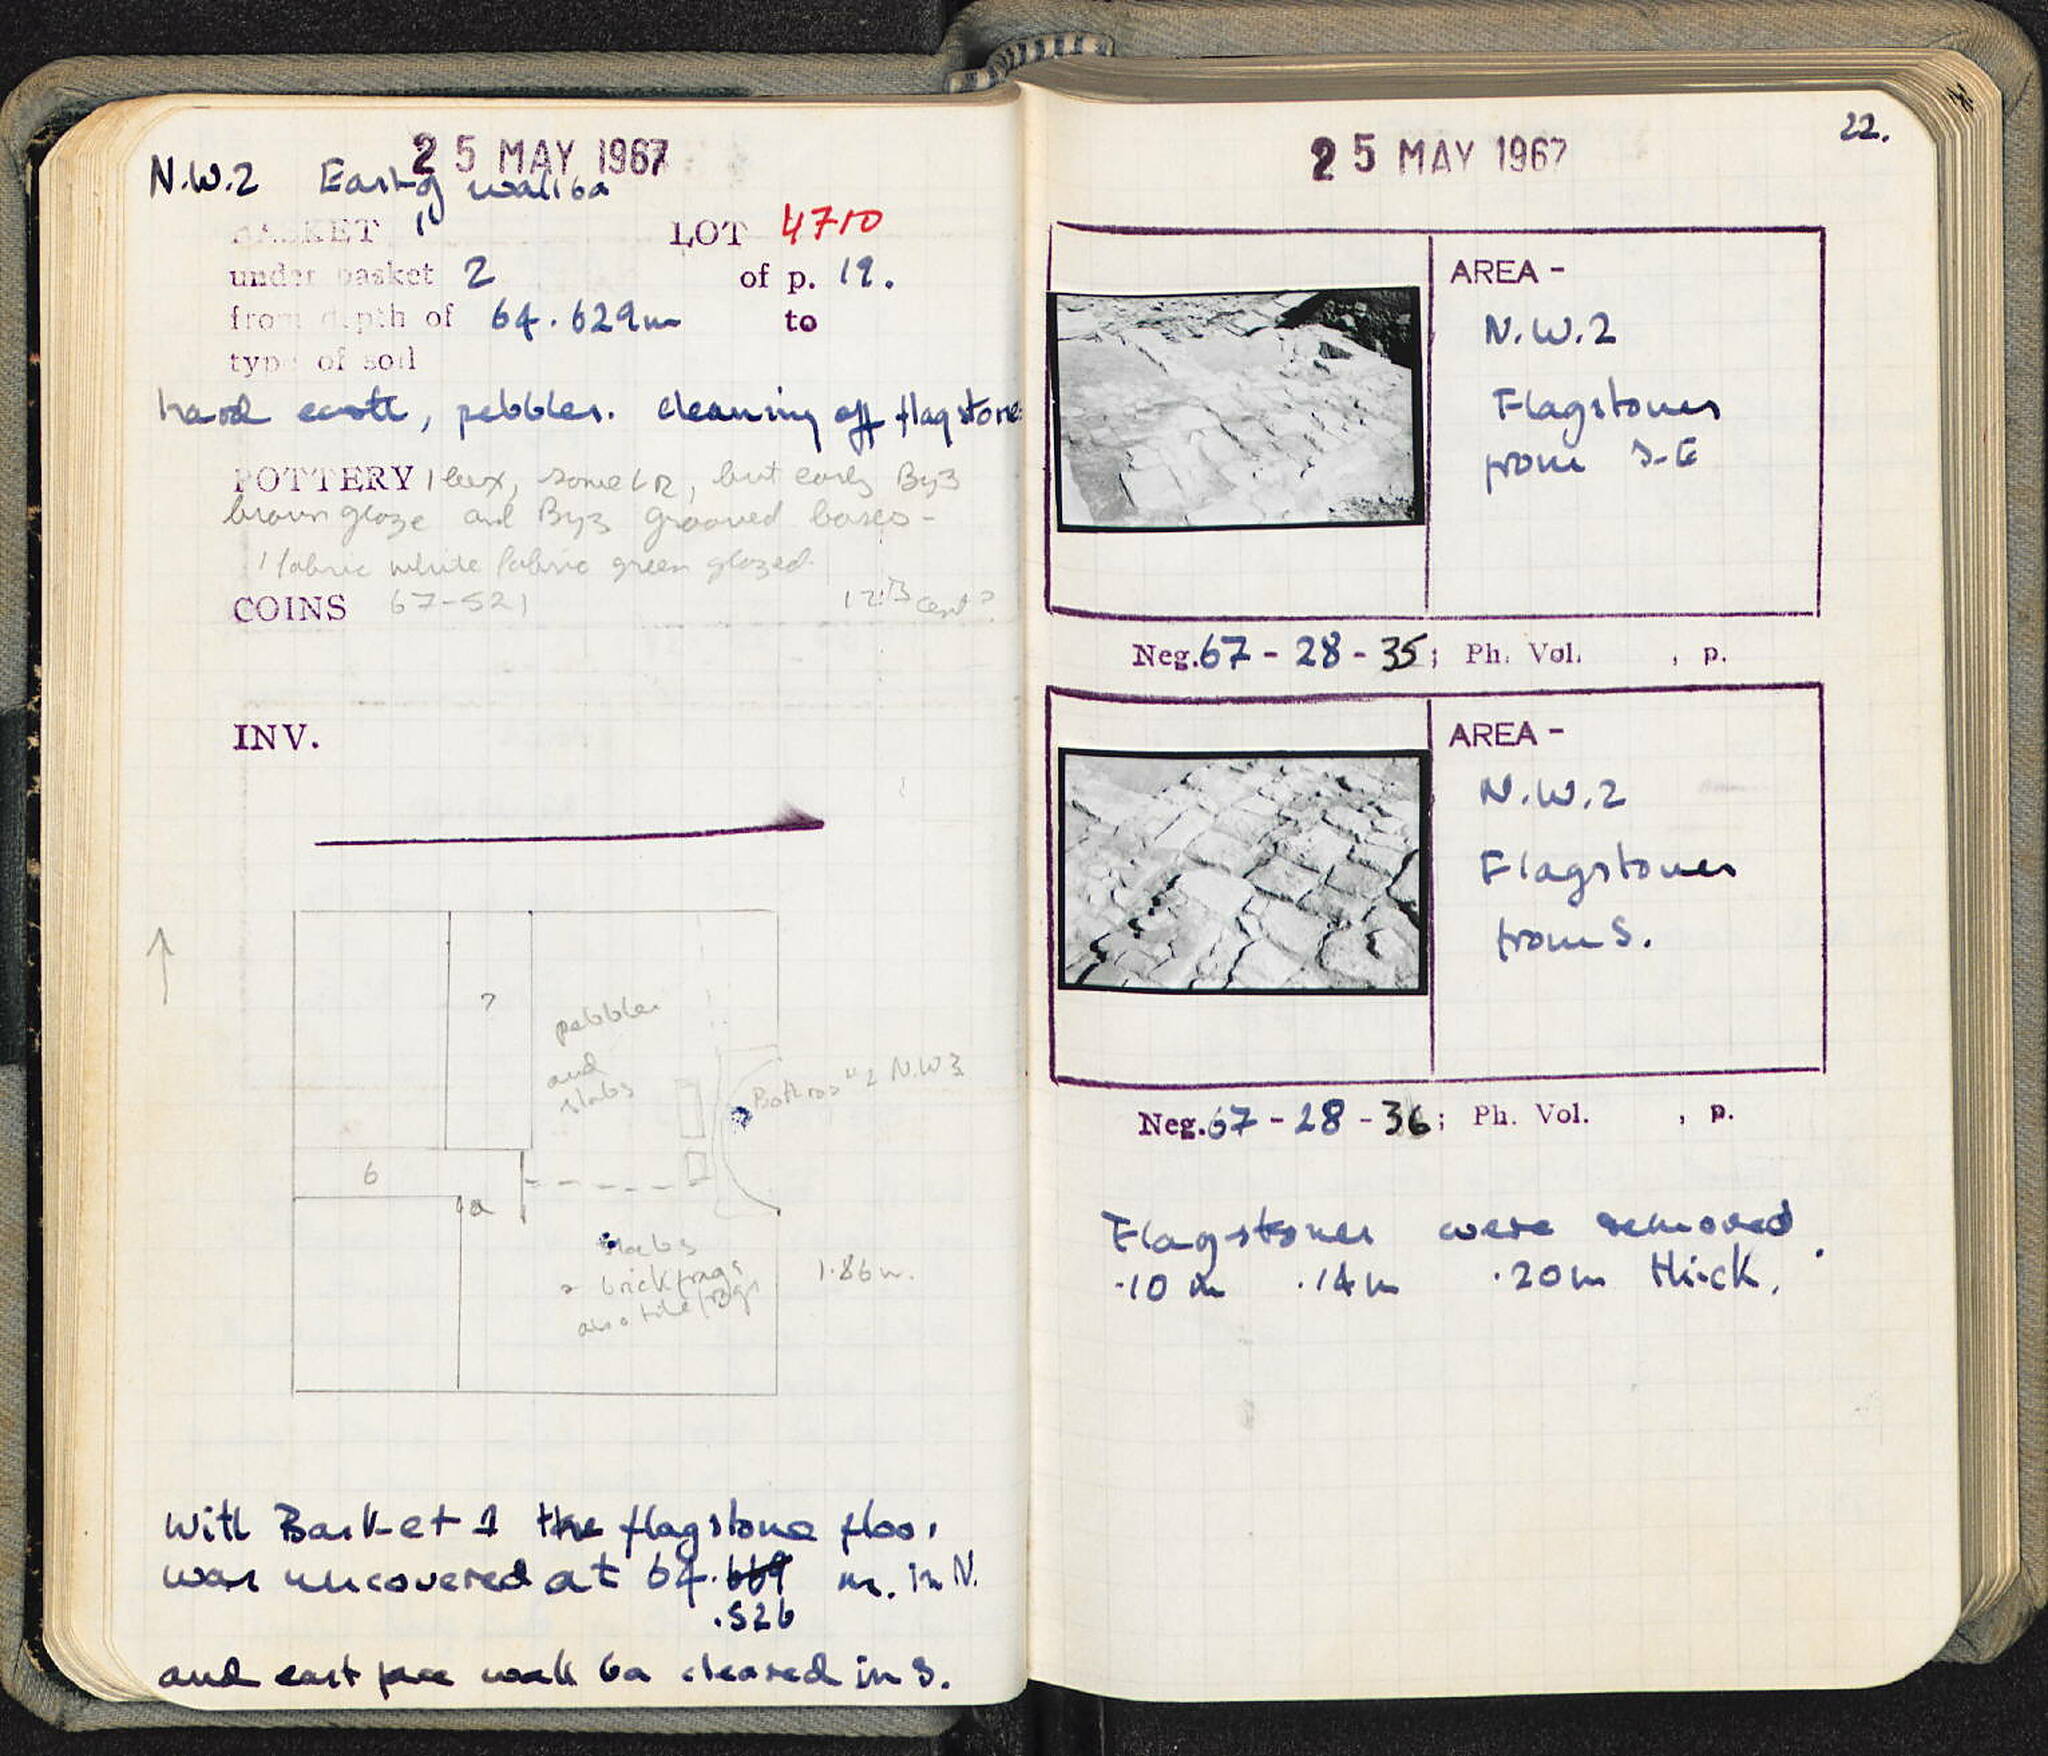 25 MAY 1967
N.W.2 East of wall 6a
BASKET 1" LOT 4710
under basket 2 of p. 19.
from depth of 64.629m to
type of soil
hard earth, pebbles. cleaning off flagstones
POTTERY 1 bux, some LR, but early Byz
brown glaze and Byz grooved bases -
1 fabric white fabric green glazed
COINS 67-521 12th cent?
INV.
7
pebbles
and
slabs
Bothros "2 N.W 3
6
a
slabs
brick frags
also tile frags
1.86m.
With Basket 1 the flagstone floor
was uncovered at 64.669 m. in N.
.526
and east face wall 6a cleared in S.
22.
25 MAY 1967
AREA -
N.W.2
Flagstones
from S-E
Neg. 67 - 28 - 35; Ph. Vol. , p.
AREA -
N.W.2
Flagstones
from S.
Neg. 67 - 28 - 36; Ph. Vol. , p.
Flagstones were removed.
.10 m .14m .20m thick.